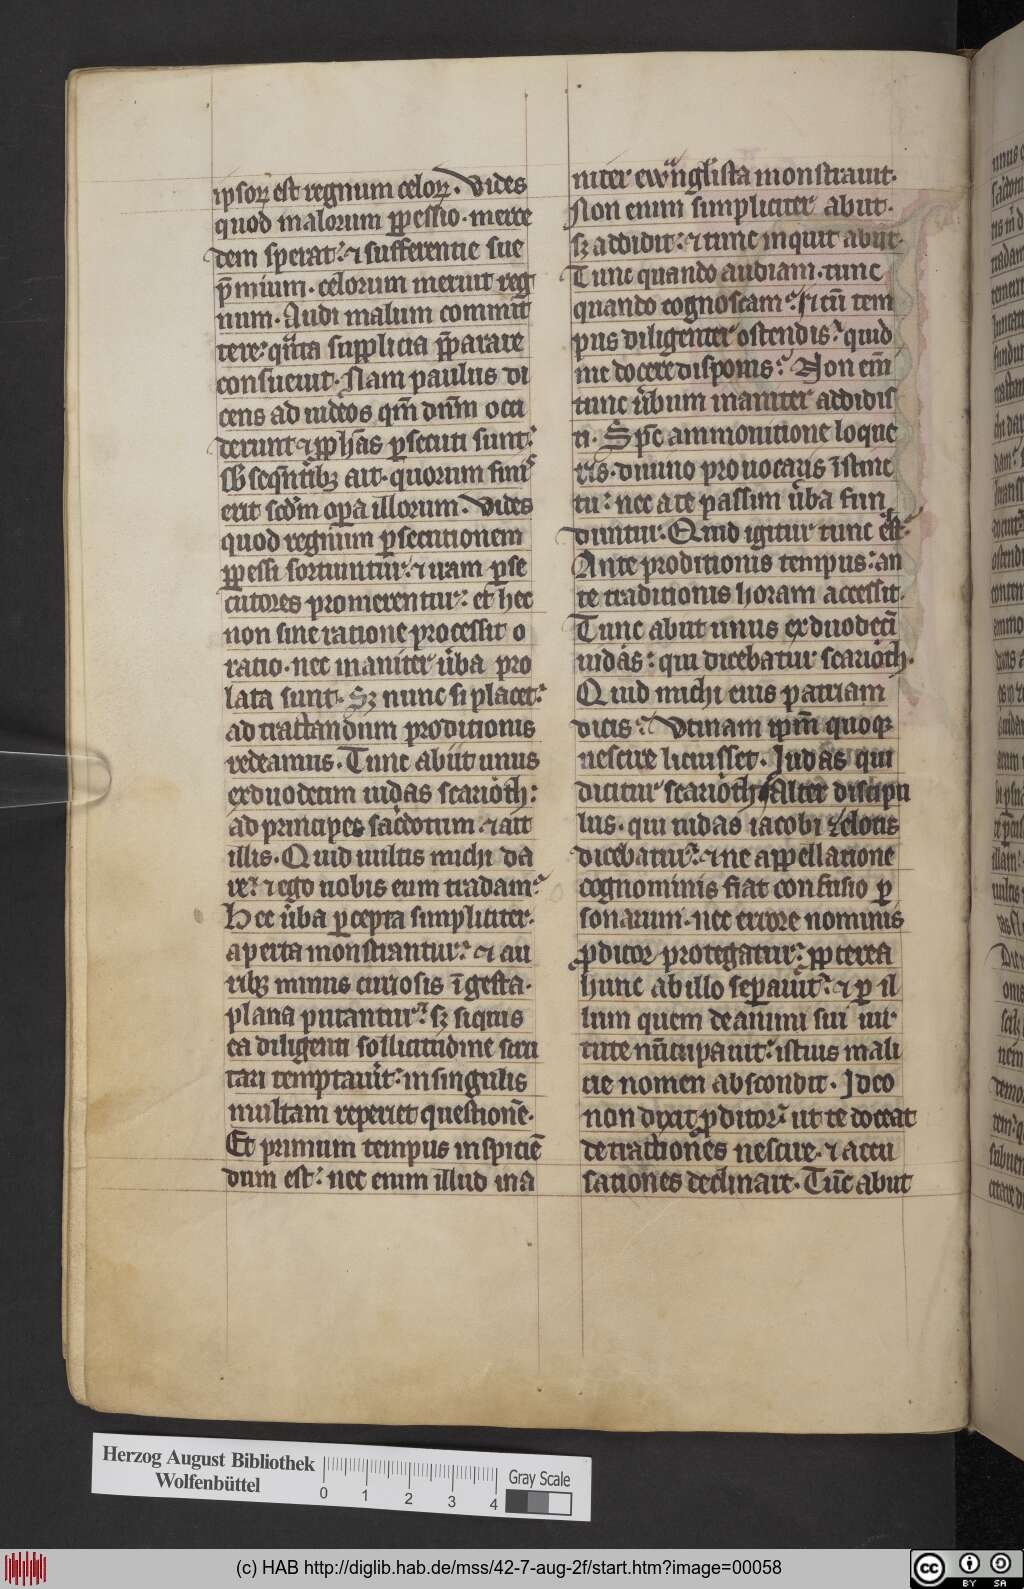 ipsoꝝ est regnum celoꝝ. Vides
quod malorum ꝑpessio. merce
dem sperat. ⁊ sufferentie sue
p̄mium. celorum meruit reg
num. Audi malum committ
tere: quāta supplicia p̄parare
consueuit. Nam paulus di
cens ad iudeos qm̄ dn̄m occi
derunt ⁊ ꝓph̄as ꝑsecuti sunt.
seq̄ntibꝫ ait. quorum finis
erit scd̄m oꝑa illorum. Vides
quod regnum ꝑsecutionem
ꝑpessi sortiuntur. ⁊ iram ꝑse
cutores promerentur. et hec
non sine ratione processit o
ratio. nec inaniter ūba pro
lata sunt. Sꝫ nunc si placet.
ad tractandum proditionis
redeamus. Tunc abiit unus
exduodecim iudas scarioth:
ad principes sacdotum. ⁊ ait
illis. Quid uultis michi da
re. ⁊ ego uobis eum tradam.
Hec ūba ꝑcepta simpliciter.
aperta monstrantur. ⁊ au
ribꝫ minus curiosis īgesta.
plana putantur. sꝫ siquis
ea diligenti sollicitudine scru
tari temptauit. in singulis
multam reperiet questionē.
Et primum tempus inspiciē
dum est. nec enim illud ina
niter ewanglista monstrauit.
Non enim simpliciter abiit.
sꝫ addidit. ⁊ tunc inquit abiit.
Tunc quando audiam. tunc
quando cognoscam. si cū tem
pus diligenter ostendis. quid
me docere disponis. Non em̄
tunc ūbum inaniter addidis
ti. Sp̄c ammonitione loque
ris. diuino prouocaris īstinc
tu. nec a te passim ūba fun
duntur. Quid igitur tunc est.
Ante proditionis tempus. an
te traditionis horam accessit.
Tunc abiit unus exduodecī
iudas: qui dicebatur scarioth.
Quid michi eius patriam
dicis. Vtinam ipm̄ quoqꝫ
nescire licuisset. Judas qui
dicitur scarioth. Alter discipu
lus. qui iudas iacobi zelotis
dicebatur. ⁊ ne appellatione
cognominis fiat confusio ꝑ
sonarum. nec errore nominis
ꝓditor protegatur. ꝓpterea
hunc ab illo seꝑauit. ⁊ ꝑ il
lum quem de animi sui uir
tute nūcupauit. istius mali
cie nomen abscondit. Ideo
non dixit ꝓditor. ut te doceat
detractiones nescire. ⁊ accu
sationes declinare. Tūc abiit
Herzog August Bibliothek
Wolfenbüttel
0 1 2 3 4
Gray Scale
(c) HAB http://diglib.hab.de/mss/42-7-aug-2f/start.htm?image=00058
cc BY SA